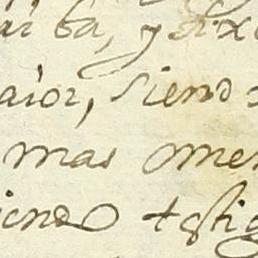 ar ba, y dix
aior, siendo
mas ome
iendo testig